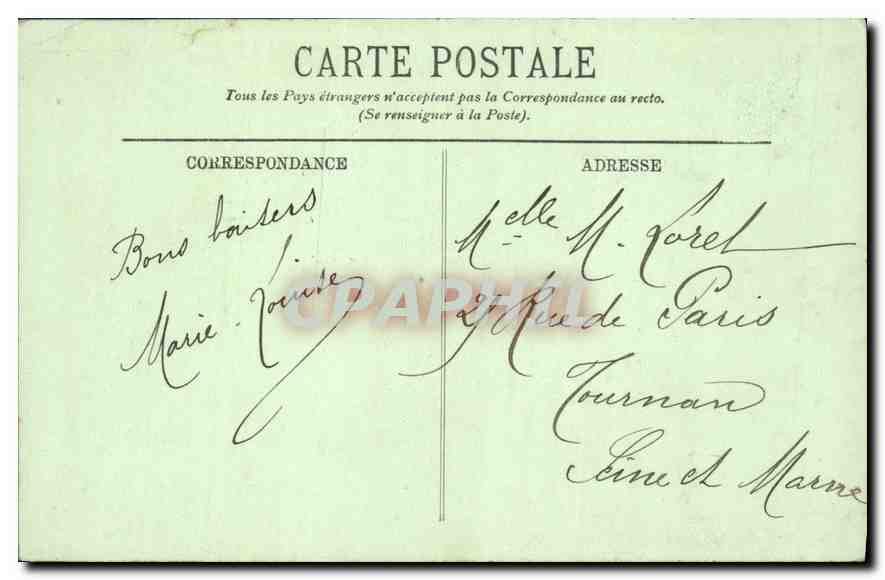 CARTE POSTALE
Tous les Pays étrangers n'acceptent pas la Correspondance au recto.
(Se renseigner à la Poste).
CORRESPONDANCE
Bons baisers
Marie-Louise
ADRESSE
Melle M. Loret
Rue de Paris
Tournan
Seine et Marne
CPAPHIL